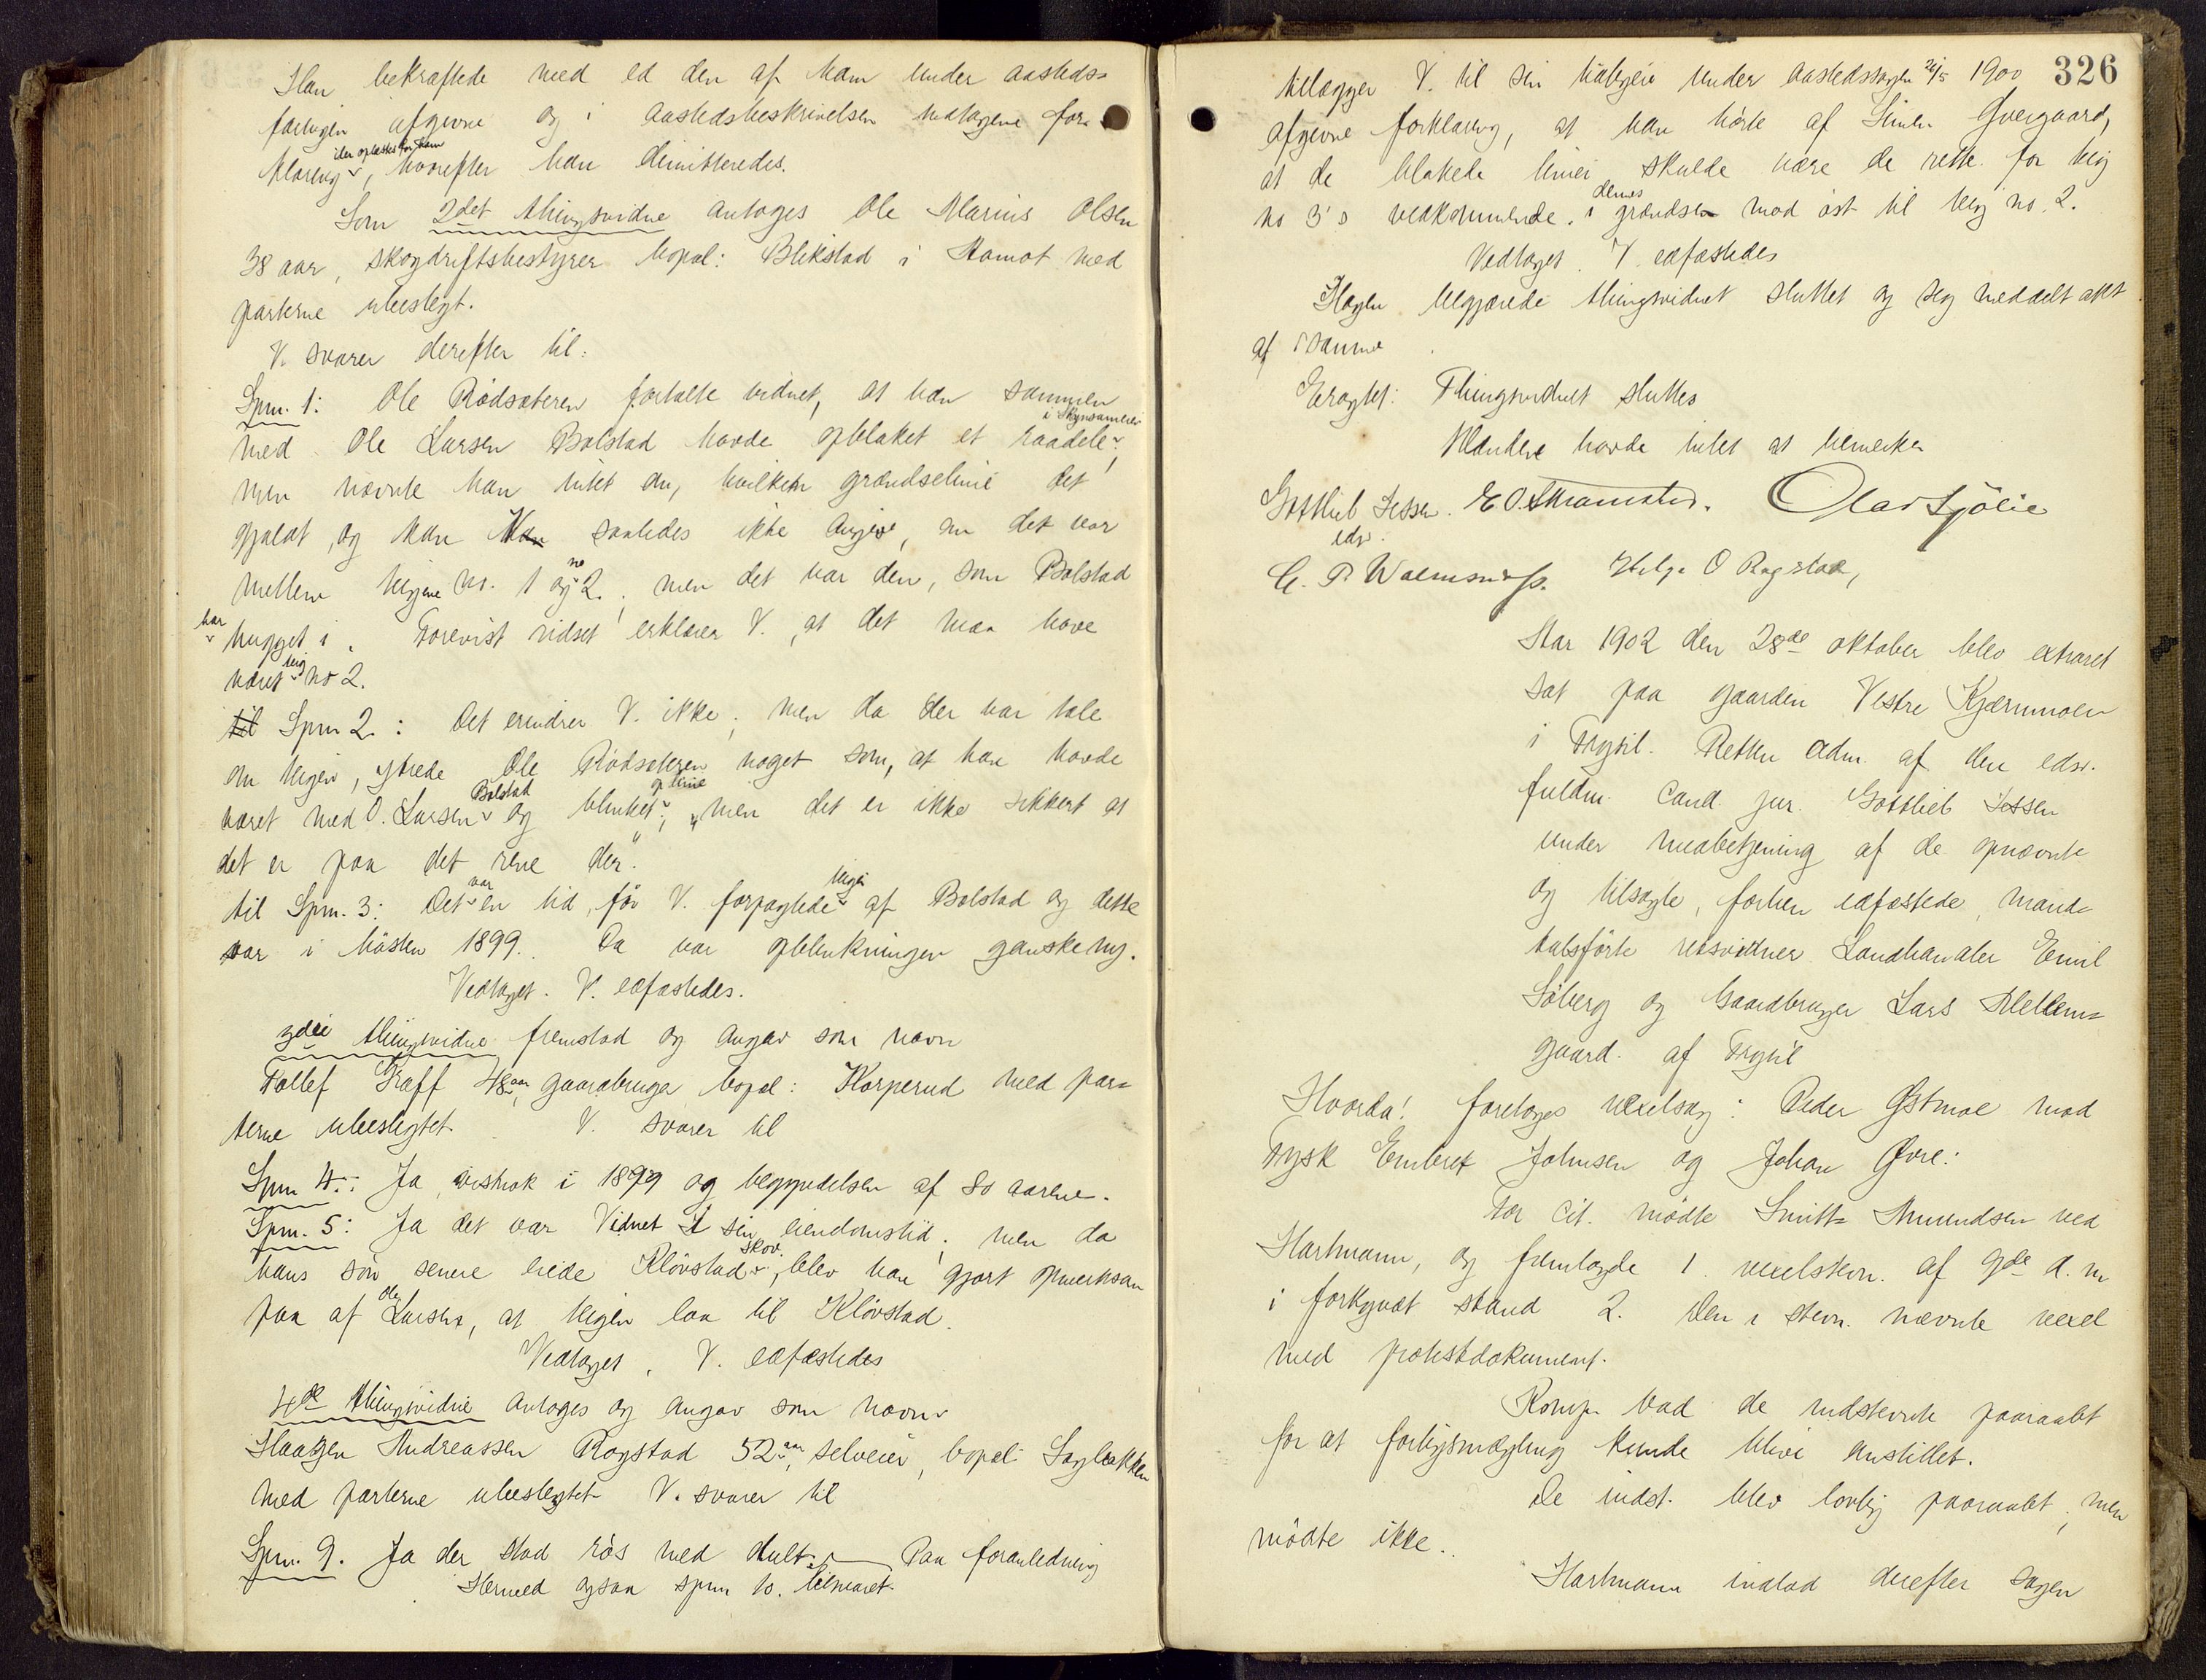 Han bekræftede med ed den af ham under aasteds-
forligen afgivne og i aastedsbeskrivelsen indtagne for-
klaring, der oplæstes for ham, hvorefter han dimitteredes.
Som 2det thingsvidne antoges Ole Marius Olsen
38 aar, skogdriftsbestyrer bopæl: Blikstad i Aamot med
parterne ubeslegt.
V. svarer derefter til:
Spm. 1: Ole Rödsæteren fortalte vidnet, at han sammen
med Ole Larsen Bolstad havde opblaket et raadele i Skynsameie,
men nævnte han intet om, hvilken grændselinie det
gjaldt, og kan saaledes ikke angive, om det var
mellem teigene No. 1 og no 2.; men det var den, som Bolstad
har hugget i. Forevist ridset erklærer V., at det maa have
været teig no 2.
til Spm 2.: Det erindrer V. ikke; men da der var tale
om teigen, ytrede Ole Rödsæteren noget som, at han havde
været med O. Larsen Bolstad og blinket op linie; "men det er ikke sikkert at
det er paa det rene der."
til Spm. 3: Det var en tid, för V. forpagtede teigen af Bolstad og dette
var i hösten 1899. Da var opblinkningen ganske ny.
Vedtaget. V. edfæstedes.
3die thingsvidne fremstod og angav som navn
Tollef Graff 48 aar, gaardbruger bopæl: Korperud med par-
terne ubeslegtet. V. svarer til
Spm 4: Ja, vistnok i 1899 og begyndelsen af 80 aarene.
Spm. 5: Ja det var Vidnet i sin eiendomstid; men da
hans sön senere eiede Klövstad skov, blev han gjort opmerksom
paa af Ole Larsen, at teigen laa til Klövstad.
Vedtaget. V. edfæstedes
4de thingsvidne antoges og angav som navn
Haagen Andreassen Rogstad 52 aar, selveier, bopæl Sagbakken
med parterne ubeslegtet V. svarer til
Spm. 9. Ja der stod rös med hult. Paa foranledning
Hermed ogsaa spm 10. besvaret.
326
tillægger V. til sin tidligere under aastedssagen 26/5 1900
afgivne forklaring, at han hörte af Simen Övergaard,
at de blakede linier skulde være de rette for teig
no 3's vedkommende i dennes grændse mod öst til teig no. 2.
Vedtaget. V. edfæstedes
Hagen begjærede thingsvidnet sluttet og sig meddelt akt
af samme.
Eragtet: Thingsvidnet sluttes
Mændene havde intet at bemerke
Gottlieb Jessen. E O. Skramstad. Olav Sjölie
edsv.
Helge O Rogstad,
Aar 1902 den 28de oktober blev extraret
sat paa gaarden Vestre Kjærnmoen
i Trysil. Retten adm. af den edsv.
fuldm. Cand. jur. Gottlieb Jessen
under medbetjening af de opnævnte
og tilsagte, forhen edfæstede, mand-
talsförte retsvidner Landhandler Emil
Söberg og Gaardbruger Lars Mellem-
gaard af Trysil
Hvorda! foretoges vexelsag: Peder Østmoe mod
Tysk Embret Johnsen og Johan Øvre:
For cit. mödte Smith Amundsen ved
Hartmann, og fremlagde 1. vexelstevn. af 9de d. m.
i forkyndt stand 2. Den i stevn. nævnte vexel
med protestdokument.
Komp. bad de indstevnte paaraabt
for at forligsmægling kunde blive anstillet.
De indst. blev lovlig paaraabt; men
mödte ikke.
Hartmann indlod derefter sagen